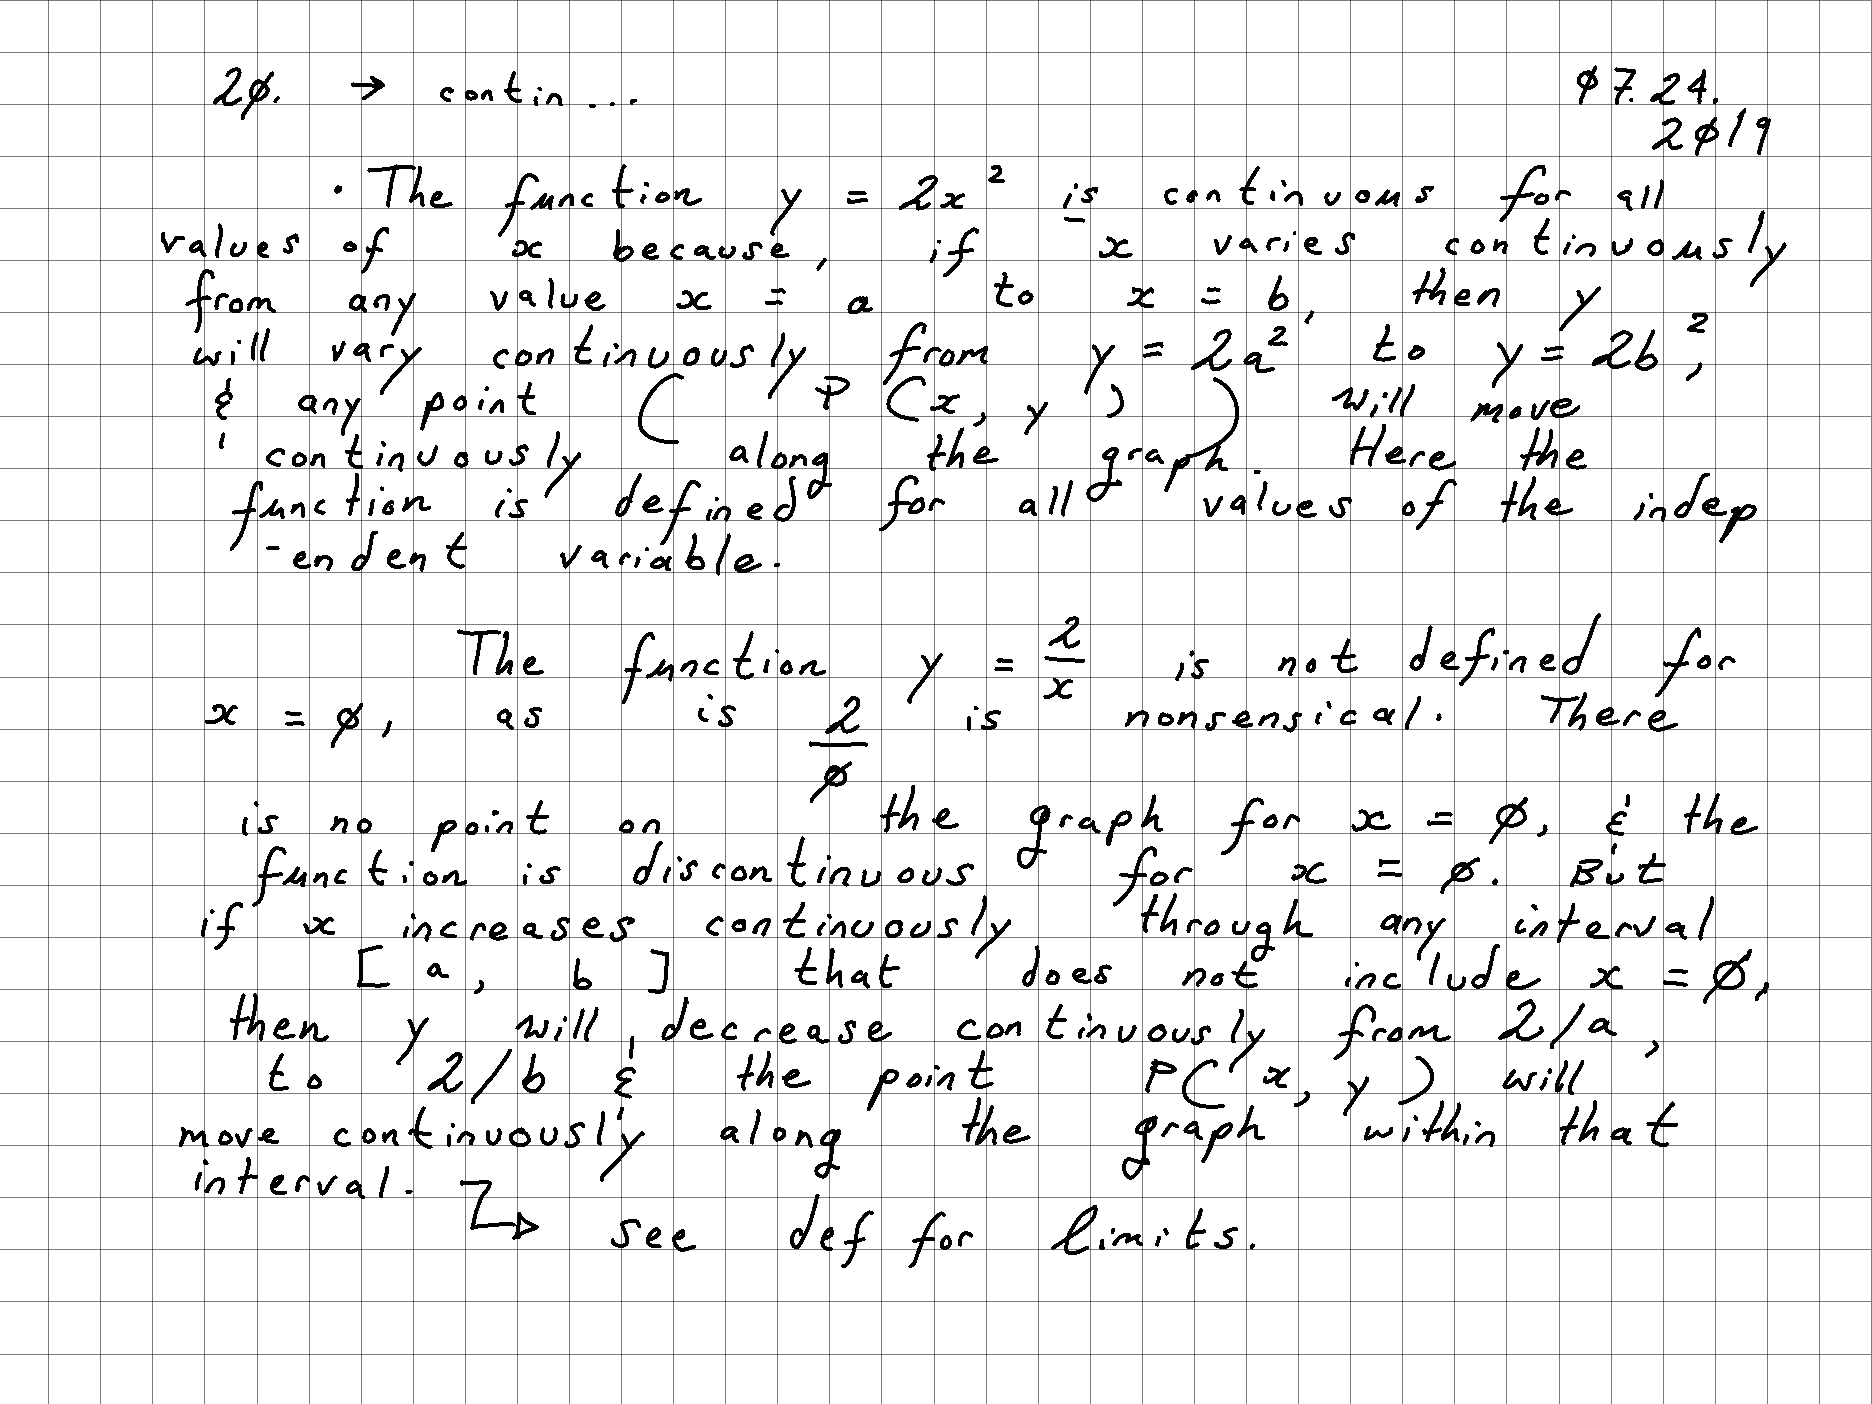 2ø. → contin...
ø7.24.
2ø19
· The function y = 2x² is continuous for all
values of x because, if x varies continuously
from any value x = a to x = b, then y
will vary continuously from y = 2a² to y = 2b²,
& any point ( P (x, y ) ) will move
continuously along the graph. Here the
function is defined for all values of the indep
-endent variable.
The function y = 2/x is not defined for
x = ø, as is 2/ø is nonsensical. There
is no point on the graph for x = ø, & the
function is discontinuous for x = ø. But
if x increases continuously through any interval
[ a, b ] that does not include x = ø,
then y will decrease continuously from 2/a,
to 2/b & the point P( x, y ) will
move continuously along the graph within that
interval.
→ see def for limits.